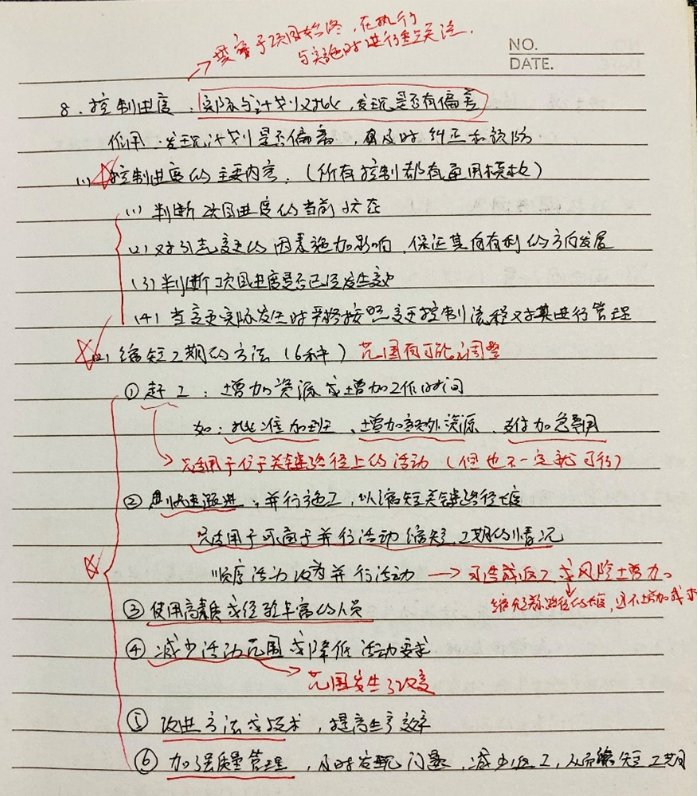 贯穿于项目始终,在执行
与实施时进行重点关注.
NO.
DATE.
8. 控制进度. 实际与计划对比,发现是否有偏差
作用:发现计划是否偏离,有及时纠正和预防
(1) 控制进度的主要内容:(所有控制都有通用模板)
(1) 判断项目进度的当前状态
(2) 对引起变更的因素施加影响,保证其向有利的方向发展
(3) 判断项目进度是否已经发生变更
(4) 当变更实际发生时严格按照变更控制流程对其进行管理
(2) 缩短工期的方法(6种) 范围有可能会调整
① 赶工:增加资源或增加工作时间
如:批准加班、增加额外资源、支付加急费用
只适用于位于关键路径上的活动(但也不一定就可行)
② 快速跟进,并行施工,以缩短关键路径长度
只适用于可通过并行活动缩短工期的情况
顺序活动改为并行活动 → 可造成返工或风险增加。
缩短关键路径的长度,但不增加成本
③ 使用高素质或经验丰富的人员
④ 减少活动范围或降低活动要求
范围发生了改变
⑤ 改进方法或技术,提高生产效率
⑥ 加强质量管理,及时发现问题,减少返工,从而缩短工期